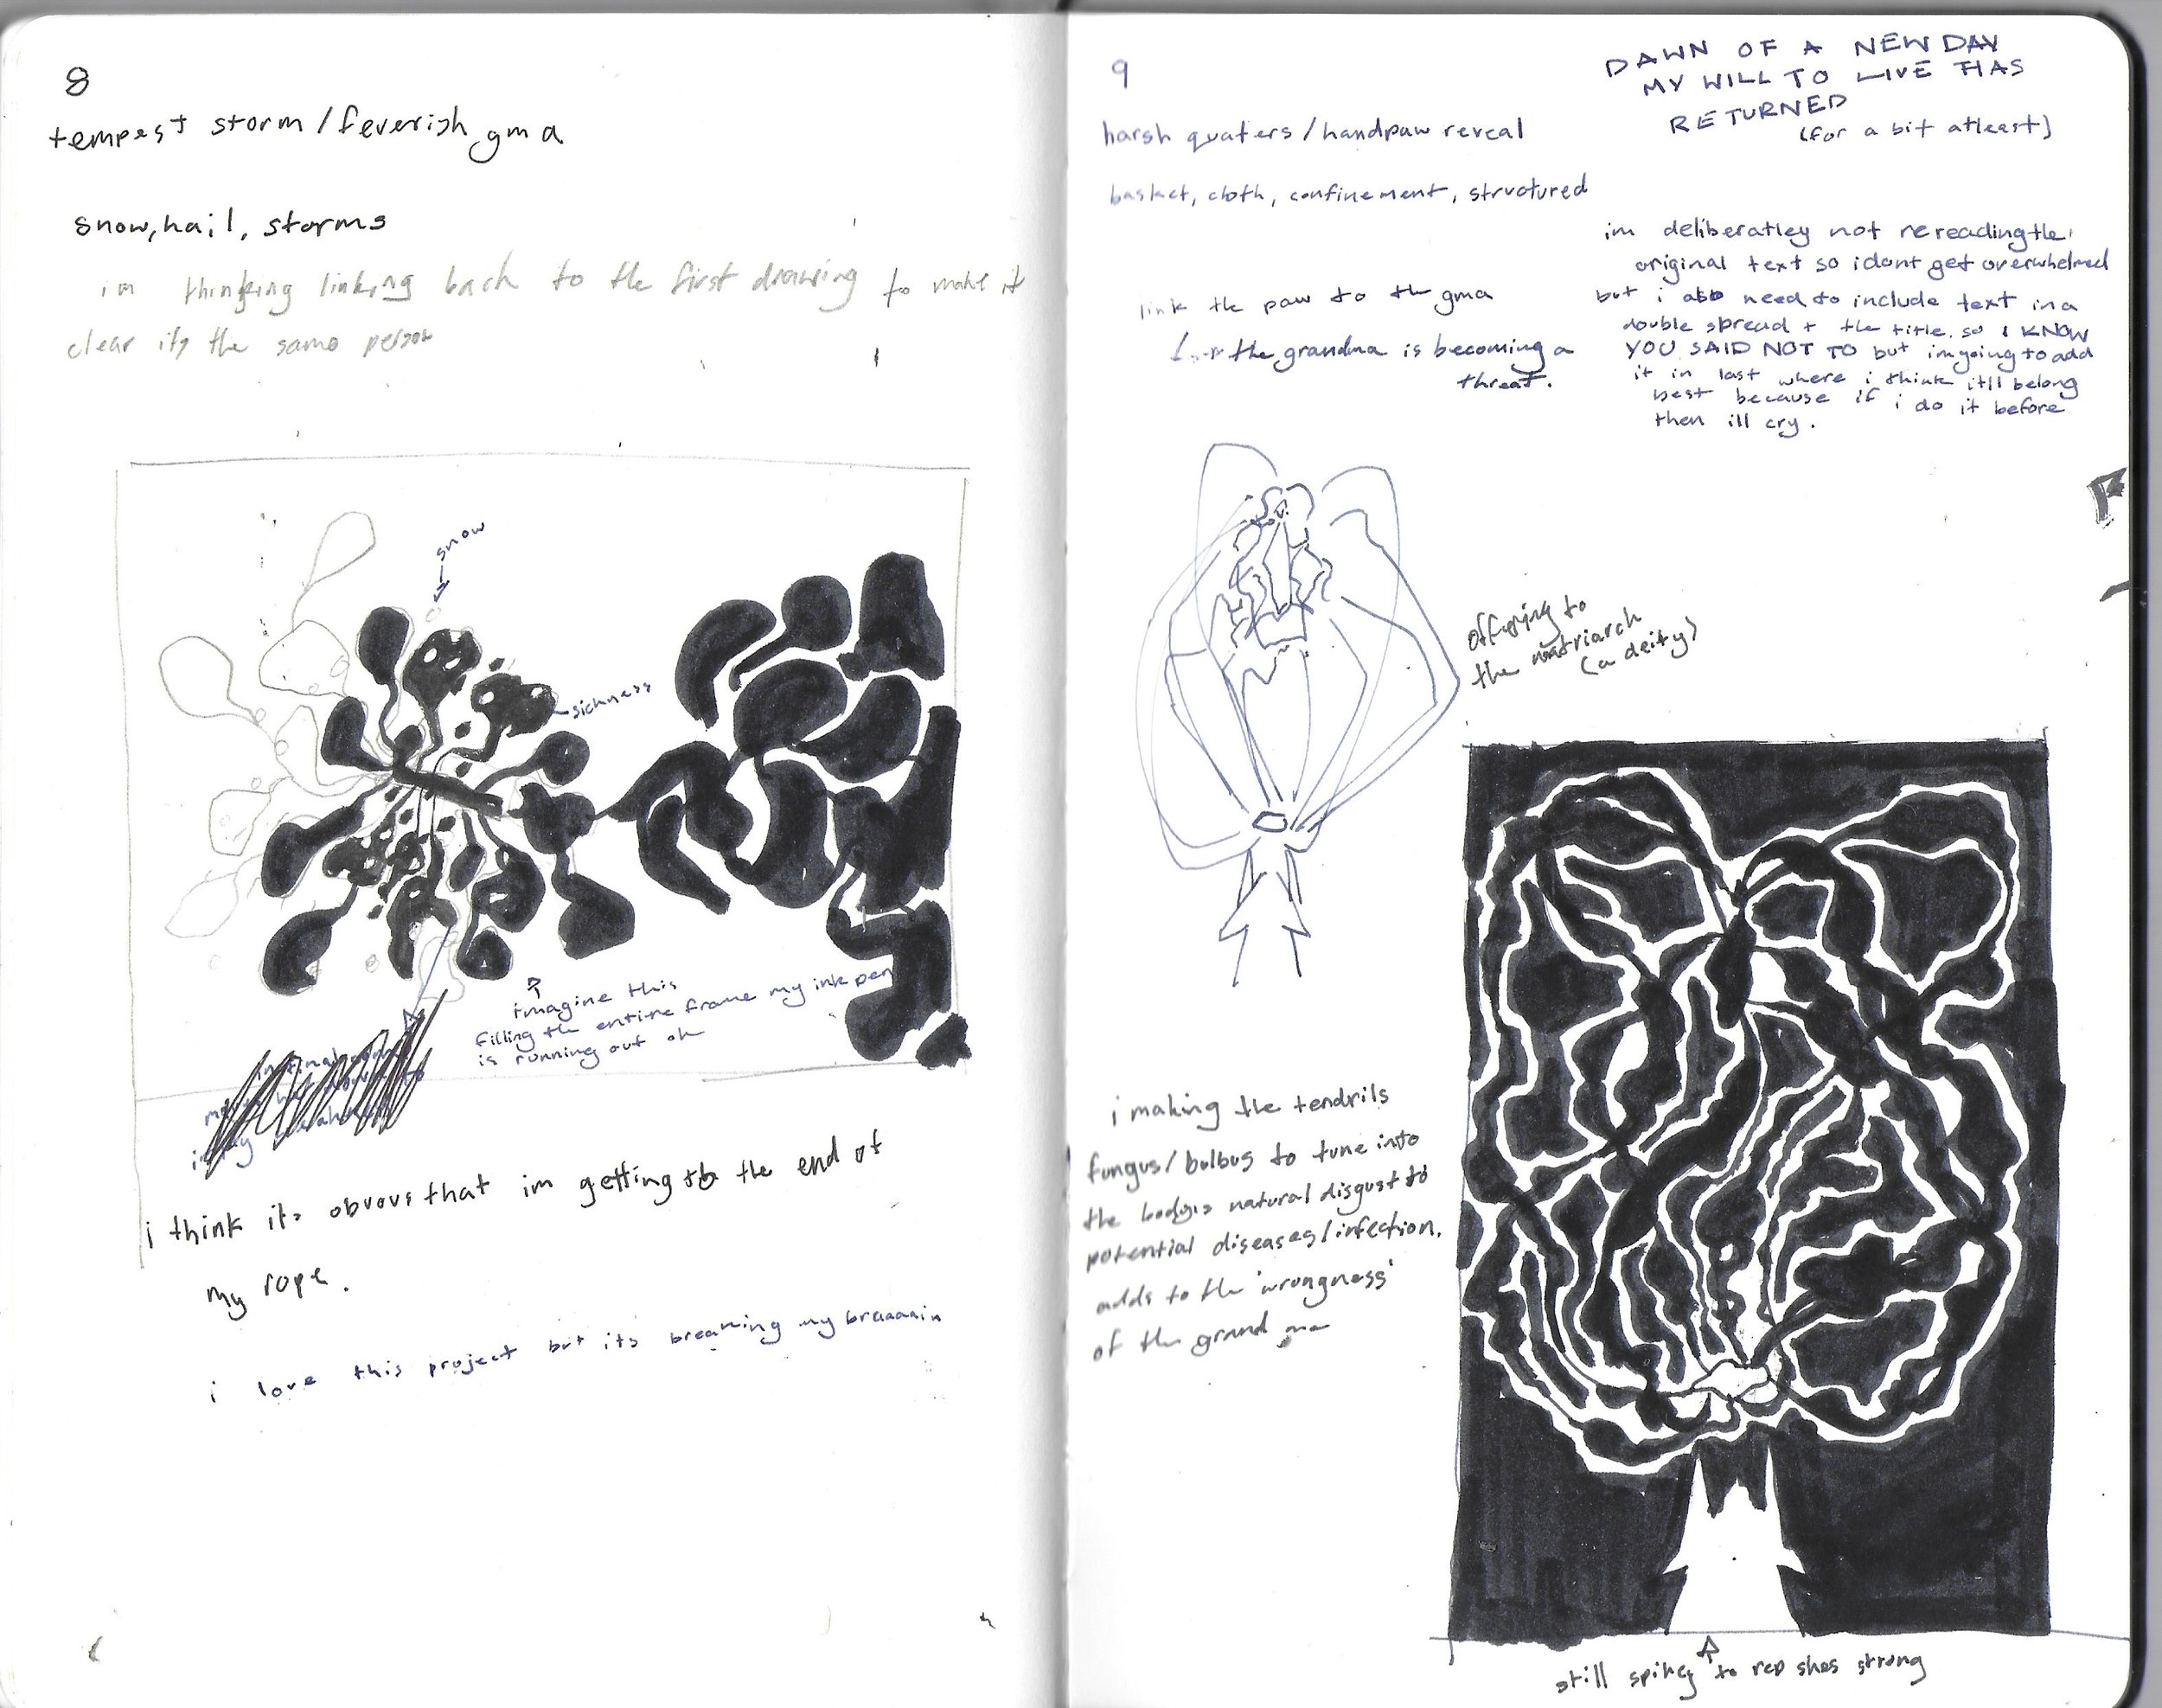 8
tempest storm/feverish gma
snow, hail, storms
im thinking linking back to the first drawing to make it
clear its the same person
snow
sickness
imagine this
filling the entire frame my ink pen
is running out oh
i think its obvous that im getting to the end of
my rope.
i love this project but its breaking my braaaain
9
DAWN OF A NEW DAY
MY WILL TO LIVE HAS
RETURNED
(for a bit atleast)
harsh quaters/handpaw reveal
basket, cloth, confinement, structured
im deliberatley not rereading the
original text so i dont get overwhelmed
but i also need to include text in a
double spread + the title. so I KNOW
YOU SAID NOT TO but im going to add
it in last where i think itll belong
best because if i do it before
then ill cry.
link the paw to the gma
the grandma is becoming a
threat.
offering to
the matriarch
(a deity)
i making the tendrils
fungus/bulbus to tune into
the bodys natural disgust to
potential diseases/infection.
adds to the 'wrongness'
of the grand ma
still spikey to rep shes strong